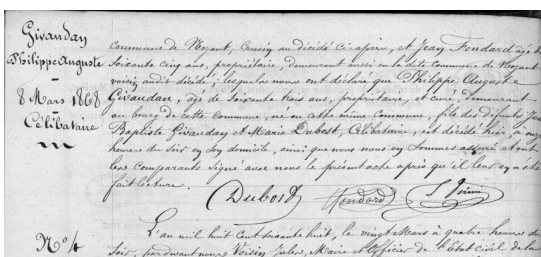 Givauday
Philippe Auguste
8 Mars 1868
Célibataire
commune de Noyant, Cousin au décédé ci-après, et Jean Fondard âgé de
Soixante cinq ans, propriétaire, demeurant aussi en la dite Commune de Noyant
voisin audit décédé; lesquels nous ont déclaré que Philippe Auguste
Givaudan, âgé de Soixante trois ans, propriétaire, et curé, demeurant
au bourg de cette Commune, né en cette même Commune, fils des défunts Jean
Baptiste Givauday et Marie Dubost, Célibataire, est décédé hier, à onze
heures du Soir en Son domicile, ainsi que nous nous en Sommes assuré et ont
les comparants Signé avec nous le présent acte après qu'il leur en a été
fait lecture.
Dubost Fondard J. Voisin
N° 4
L'an mil huit Cent Soixante huit, le vingt Mars à quatre heures du
Soir, pardevant nous Voisin Jules, Maire et Officier de l'Etat civil de la